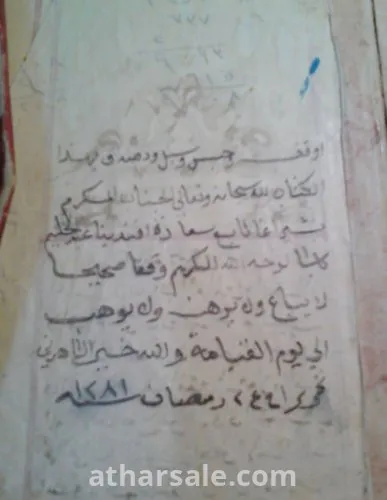 ٧٧٧
اوقف وحبس وسبل وتصدق بهذا
الكتاب لله سبحانه وتعالى الجناب المكرم
بشير اغا تابع سعادة افندينا عبد الحليم
باشا لوجه الله الكريم وقفا صحيحا
لا يباع ولا يرهن ولا يوهب
الى يوم القيامة والله خير الشاهدين
تحريرا في ٢ رمضان سنة ١٢٨١
atharsale.com